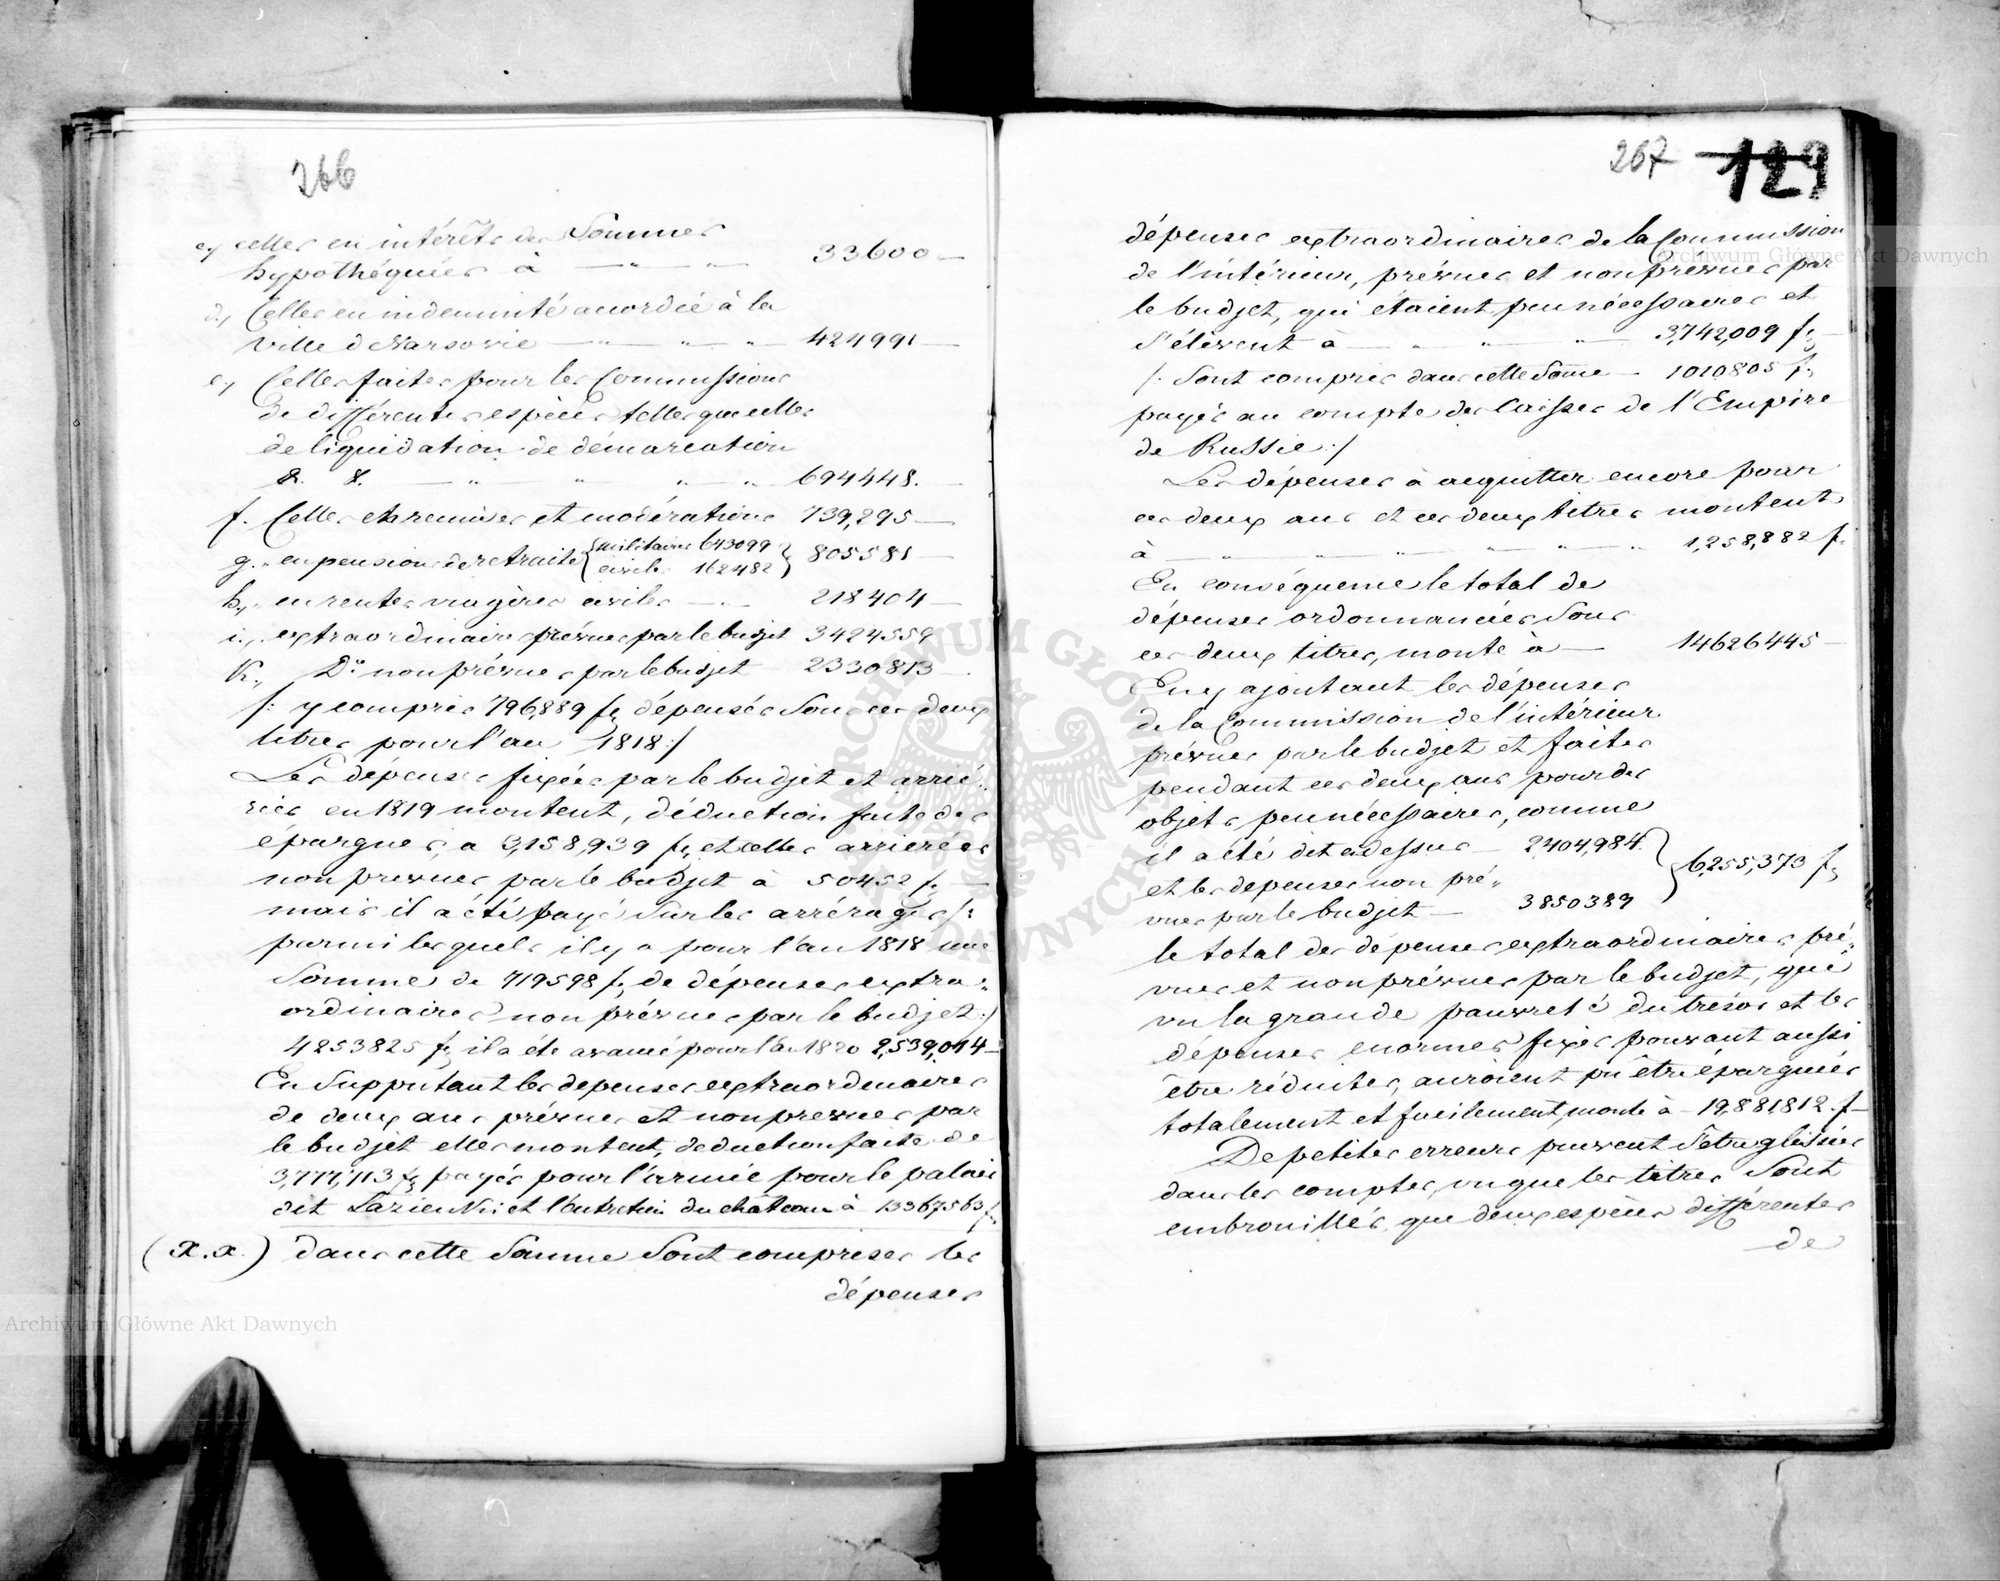 266
c, celles en intérêts des Sommes
hypothéquées à — " — " — 33600 —
d, Celles en indemnité accordée à la
ville de Varsovie — " — " — " 424991 —
e, Celles faites pour les Commissions
de différentes espèces telles que celles
de liquidation de démarcation
&. &. — " " " " 694448. —
f. Celles en remises et modérations 739,295 —
g. " en pensions de retraite { militaires 643099 } 805581 —
civiles 162482
h, " en rentes viagères civiles — " — 218404 —
i, " extraordinaires prévues par le budjet 3424559
K, D° non prévues par le budjet 2330813 —
/: y compris 796,889 f, dépensés Sous ces deux
titres pour l'an 1818 :/
Les dépenses fixées par le budjet et arrié„
rées en 1819 montent, déduction faite des
épargnes, a 3,158,939 f, et celles arrierées
non prevues par le budjet à 50452 f, —
mais il a été payé Sur les arrérages /:
parmi lesquels il y a pour l'an 1818 une
Somme de 719598 f, de dépenses extra„
ordinaires non prévues par le budjet :/
4253825 f, il a été avancé pour l'an 1820 2,539,014 —
En Supputant les depenses extraordinaires
de deux ans prévues et non prevues par
le budjet elles montent, deduction faite de
3,777,713 f, payés pour l'armée pour le palais
dit Łazienki et l'entretien du château à 13367563 f,
(x.x.) dans cette Somme Sont comprises les
dépenses
267 129
dépenses extraordinaires de la Commission
de l'intérieur, prévues et non prevues par
le budjet, qui etaient peu nécessaires et
S'élèvent à — " " " — 3,742,009 f, —
/: Sont compris dans cette Somme — 1010805 f,
payés au compte des Caisses de l'Empire
de Russie :/
Les dépenses à acquitter encore pour
ces deux ans et ces deux titres montent
à — " — " — " — " 1,258,882 f,
En conséquence le total de
dépenses ordonnancées Sous
ces deux titres, monte à — 14626445 —
En y ajoutant les dépenses
de la Commission de l'intérieur
prévues par le budjet et faites
pendant ces deux ans pour des
objets peu nécessaires, comme
il a été dit cidessus — 2,404,984. } 6,255,373 f,
et les depenses non pré„
vues par le budjet — 3850389
le total des dépenses extraordinaires pré„
vues et non prévues par le budjet, qui
vu la grande pauvreté du trésor et les
dépenses enormes fixes pouvant aussi
être réduites, auroient pû être épargnées
totalement et facilement, monte à — 19,881812. f —
De petites erreurs peuvent S'être glissées
dans les comptes, vu que les titres Sont
embrouillés, que deux espèces différentes
de
Archiwum Główne Akt Dawnych
Archiwum Główne Akt Dawnych
ARCHIWUM GŁÓWNE AKT DAWNYCH